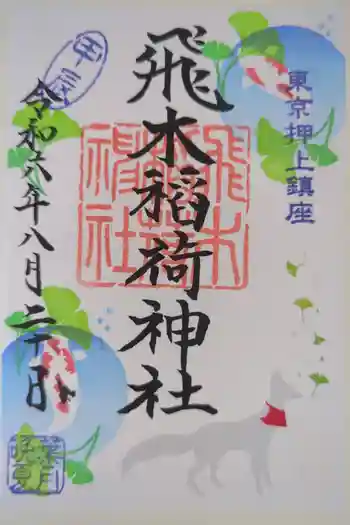 東京押上鎮座
飛木稲荷神社
飛木
稲荷
神社
令和六年八月二十日
葉月
晩夏